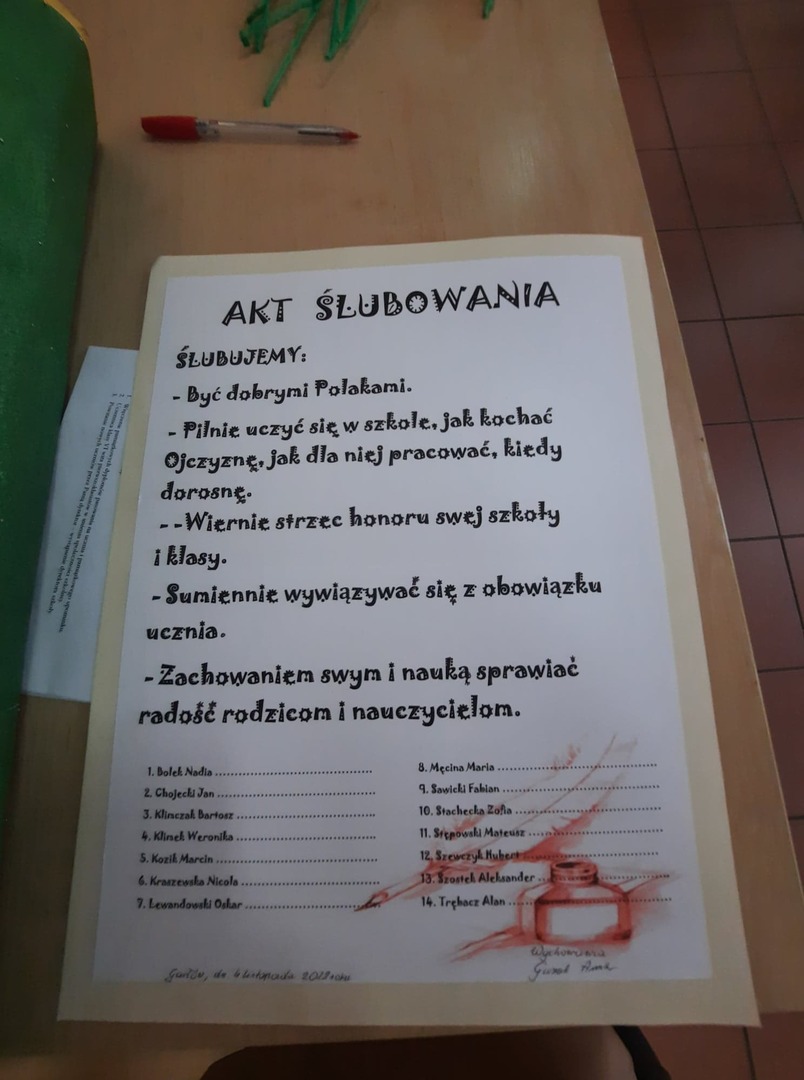 AKT ŚLUBOWANIA
ŚLUBUJEMY:
- Być dobrymi Polakami.
- Pilnie uczyć się w szkole, jak kochać
Ojczyznę, jak dla niej pracować, kiedy
dorosnę.
- -Wiernie strzec honoru swej szkoły
i klasy.
- Sumiennie wywiązywać się z obowiązku
ucznia.
- Zachowaniem swym i nauką sprawiać
radość rodzicom i nauczycielom.
1. Bolek Nadia ........................................
2. Chojecki Jan ........................................
3. Klimczak Bartosz ...................................
4. Klimek Weronika ...................................
5. Kozik Marcin ........................................
6. Kraszewska Nicola ...................................
7. Lewandowski Oskar ...................................
8. Męcina Maria ........................................
9. Sawicki Fabian ......................................
10. Stachecka Zofia ....................................
11. Stępowski Mateusz .................................
12. Szewczyk Hubert ...................................
13. Szostek Aleksander ................................
14. Trębacz Alan ......................................
dn 4 listopada 2022 roku